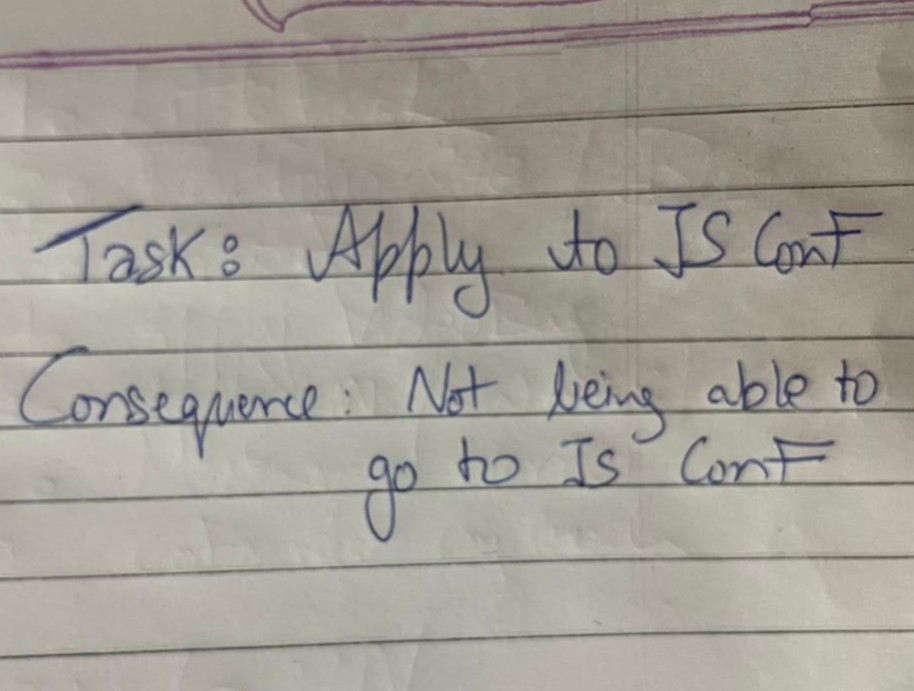 Task: Apply to JS ConF
Consequence: Not being able to
go to Js ConF